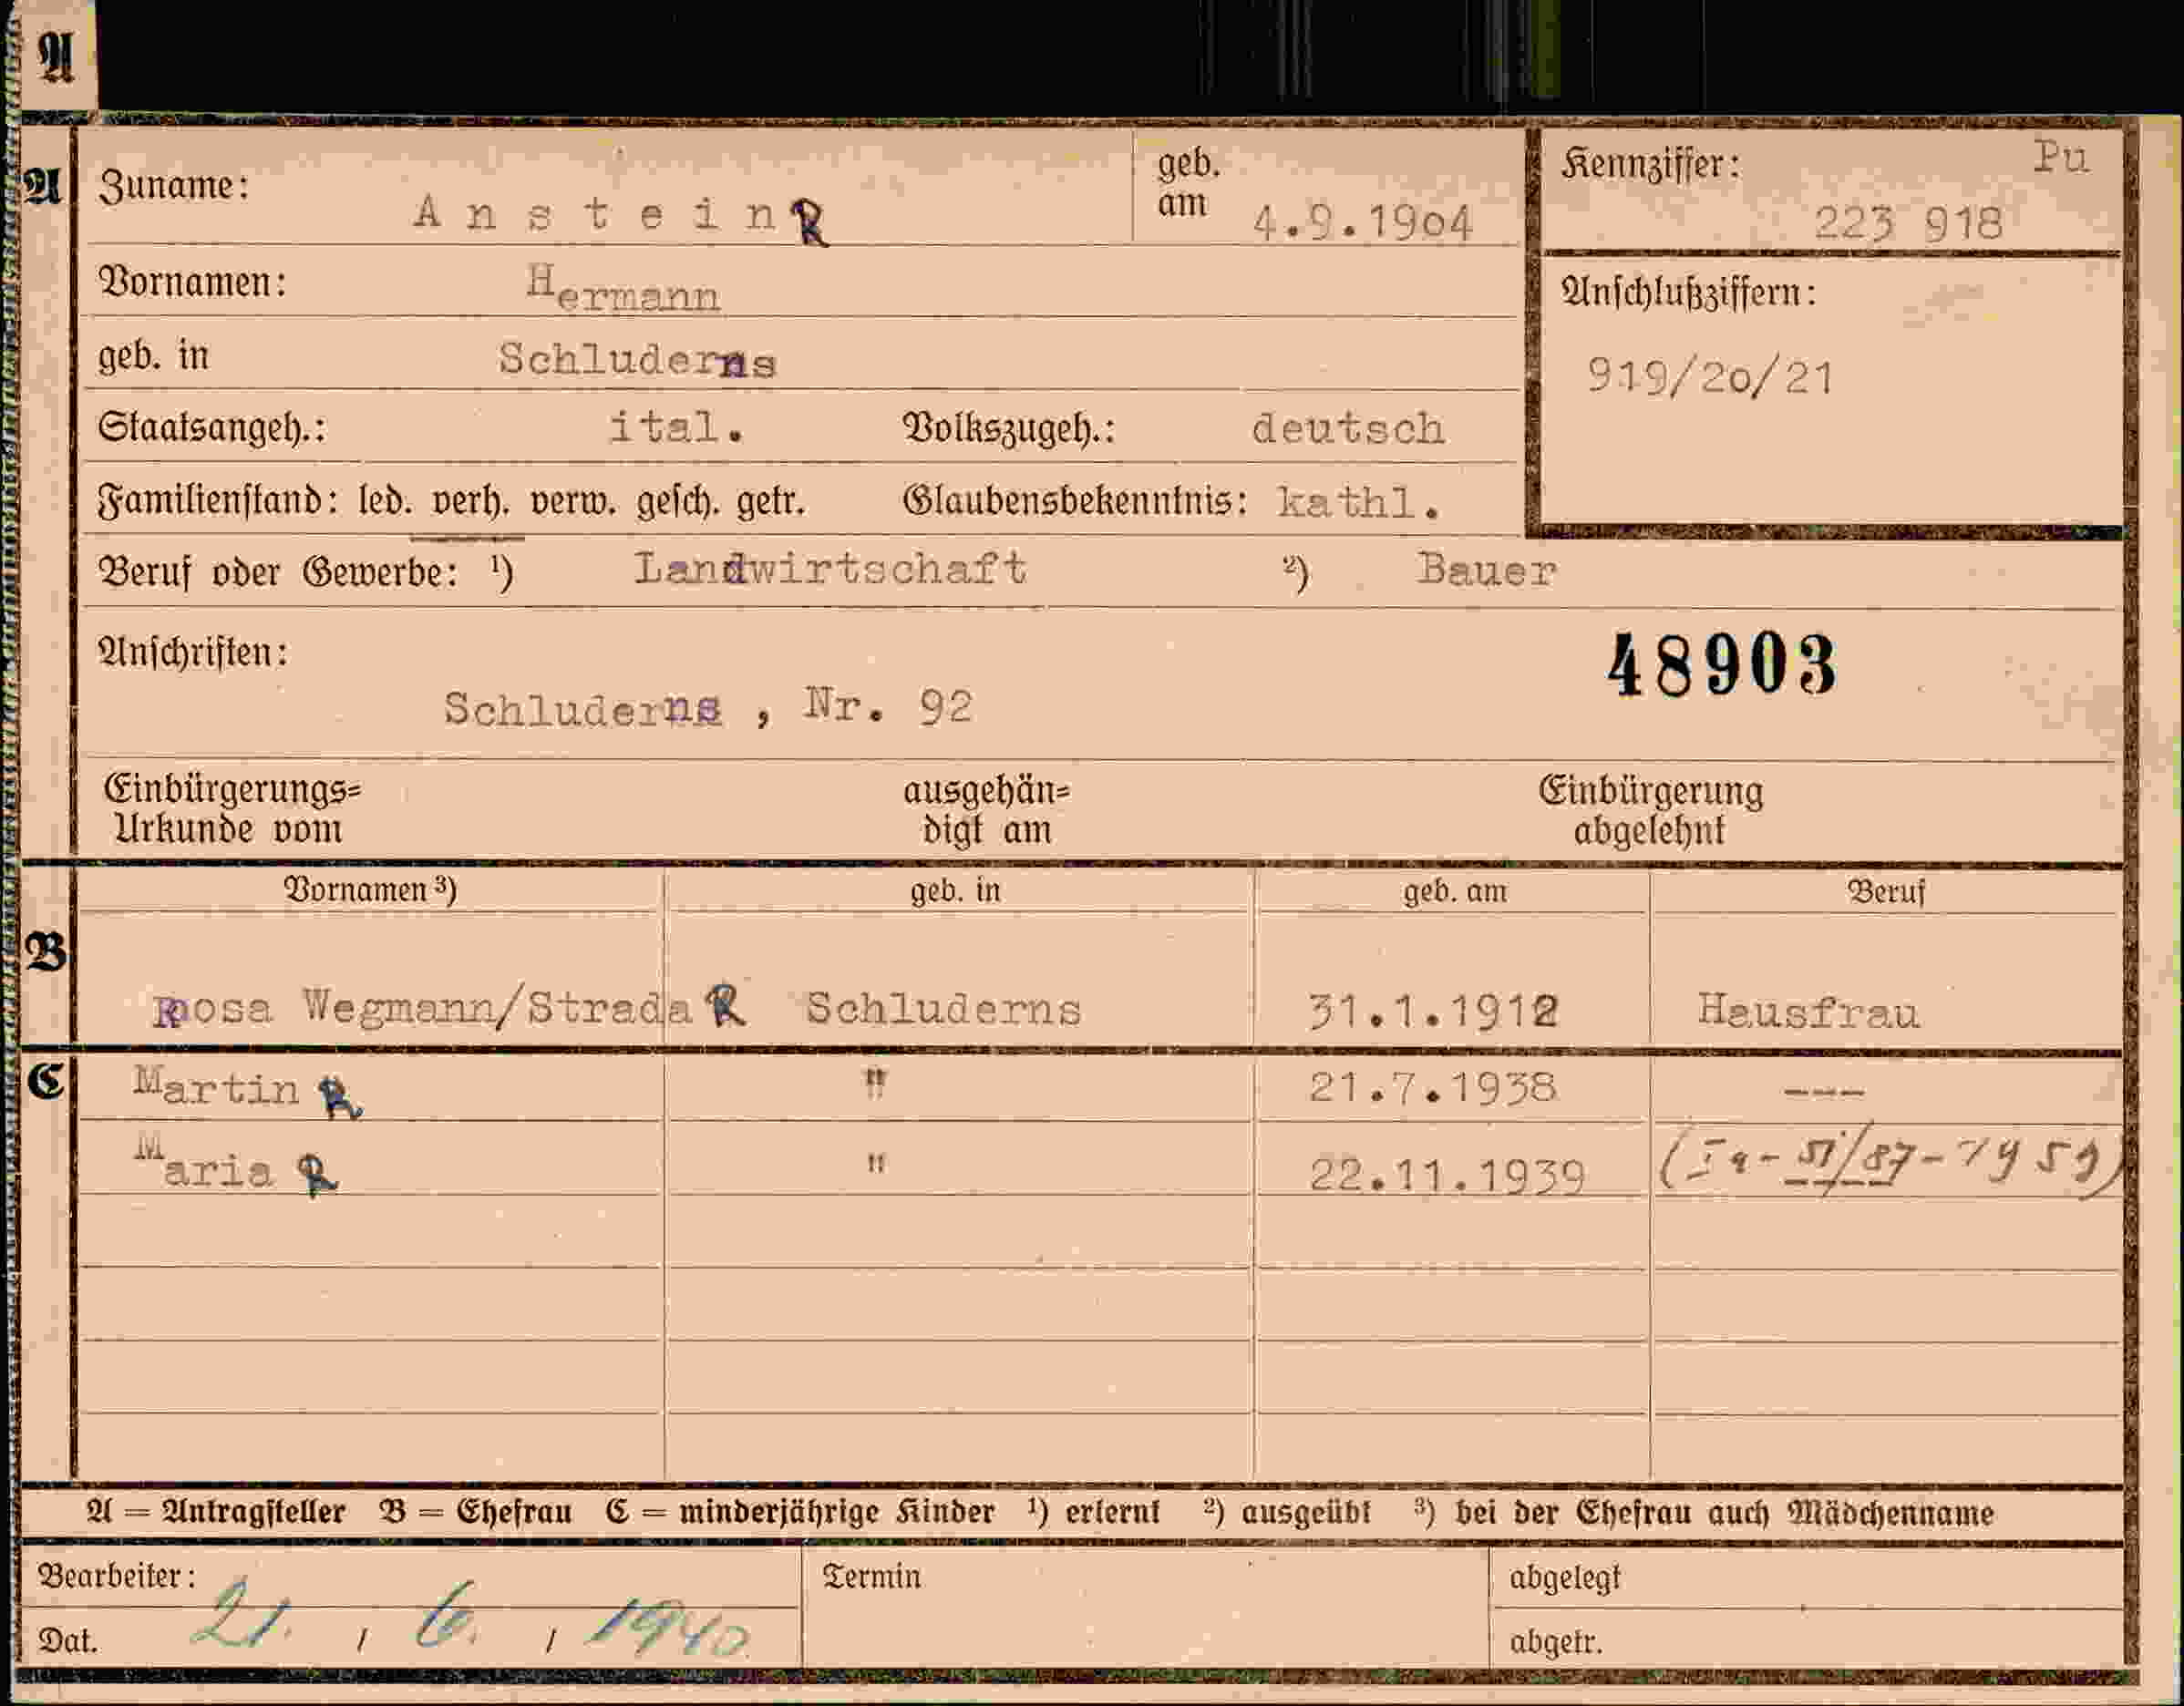 A
A
Zuname: Anstein R
geb. am 4.9.1904
Kennziffer: Pu
223 918
Vornamen: Hermann
Anschlußziffern:
919/20/21
geb. in Schluderns
Staatsangeh.: ital. Volkszugeh.: deutsch
Familienstand: led. verh. verw. gesch. getr. Glaubensbekenntnis: kathl.
Beruf oder Gewerbe: ¹) Landwirtschaft ²) Bauer
Anschriften:
48903
Schluderns , Nr. 92
Einbürgerungs=
Urkunde vom
ausgehän=
digt am
Einbürgerung
abgelehnt
Vornamen ³) geb. in geb. am Beruf
B
Rosa Wegmann/Strada R Schluderns 31.1.1912 Hausfrau
C
Martin R " 21.7.1938 ---
Maria R " 22.11.1939
A = Antragsteller B = Ehefrau C = minderjährige Kinder ¹) erlernt ²) ausgeübt ³) bei der Ehefrau auch Mädchenname
Bearbeiter: Termin abgelegt
Dat. 21. / 6. / 1940 abgetr.